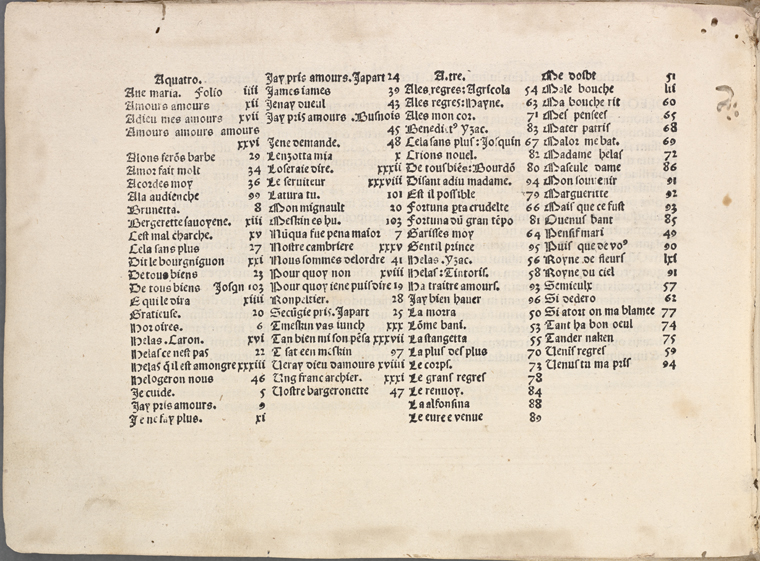 Aquatro.
Aue maria. Folio iiii
Amours amours xii
Adieu mes amours xvii
Amours amours amours
xxvi
Alons ferõs barbe 29
Amor fait molt 34
Acordes moy 36
Ala audienche 99
Brunetta. 8
Bergerette sauoyene. xiii
Cest mal charche. xv
Cela sans plus 27
Dit le bourgniguon xxi
De tous biens 23
De tous biens Josqn 103
E qui le dira xiiii
Gratieuse. 20
Hor oires. 6
Helas .Caron. xvi
Helas ce nest pas 22
Helas q̃ il est amongre xxxiii
Helogeron nous 46
Je cuide. 5
Jay pris amours. 9
Je ne fay plus. xi
Jay pris amours. Japart 24
James iames 39
Jenay dueul 43
Jay pris amours .Busnois
45
Jene demande. 48
Lenzotta mia x
Loseraie dire. xxxii
Le seruiteur xxxviii
Latura tu. 101
Mon mignault 20
Meskin es hu. 103
Nũqua fue pena maior 7
Nostre cambriere xxxv
Nous sommes delordre 41
Pour quoy non xviii
Pour quoy iene puis dire 19
Ronpeltier. 28
Secũgie pris. Japart 25
Tmeskin vas iunch xxx
Tan bien mi son pẽsa xxxvii
T sat een meskin 97
Ueray dieu damours xviiii
Ung franc archier. xxxi
Vostre bargeronette 47
A.tre.
Ales regres: Agricola 54
Ales regres: Hayne. 63
Ales mon cor. 71
Benedictꝰ yzac. 83
Cela sans plus: Josquin 67
Crions nouel. 82
De tous biẽs: Bourdõ 80
Disant adiu madame. 94
Est il possible 79
Fortuna pta crudelte 66
Fortuna dũ gran tẽpo 81
Garisses moy 64
Gentil prince 95
Helas .Yzac. 56
Helas: Tintoris. 58
Ha traitre amours. 93
Jay bien hauer 96
La morra 50
Lõme bani. 53
La stangetta 55
La plus des plus 70
Le corps. 73
Le grans regres 78
Le renuoy. 84
La alfonsina 88
Le eure e venue 89
Me doibt 51
Male bouche lii
Ma bouche rit 60
Mes pensees 65
Mater patris 68
Malor me bat. 69
Madame helas 72
Mascule dame 86
Mon souuenir 91
Margueritte 92
Mais que ce fust 93
Ouenus bant 85
Pensif mari 49
Puis que de voꝰ 90
Royne de fleurs lxi
Royne du ciel 91
Semieulx 57
Si dedero 62
Si atort on ma blamee 77
Tant ha bon oeul 74
Tander naken 75
Venis regres 59
Venus tu ma pris 94